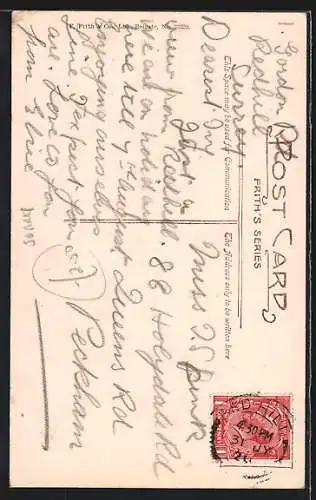 F. Frith & Co. Ltd., Reigate, No.
POST CARD
FRITH'S SERIES
This Space may be used for Communication
The Address only to be written here
Gordon
Redhill
Surrey
Dearest Ivy
Just a
view from Redhill.
We are on holiday
here till 7th August
enjoying ourselves
fine I expect you are
all. Love to you
from Elsie
Miss I. S.
88 Holydale Rd
Queens Rd
Peckham
REDHILL
4.30 PM
31 JY